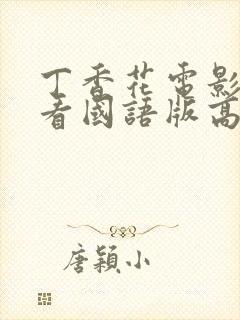 丁香花電影
看國語版高
唐穎小